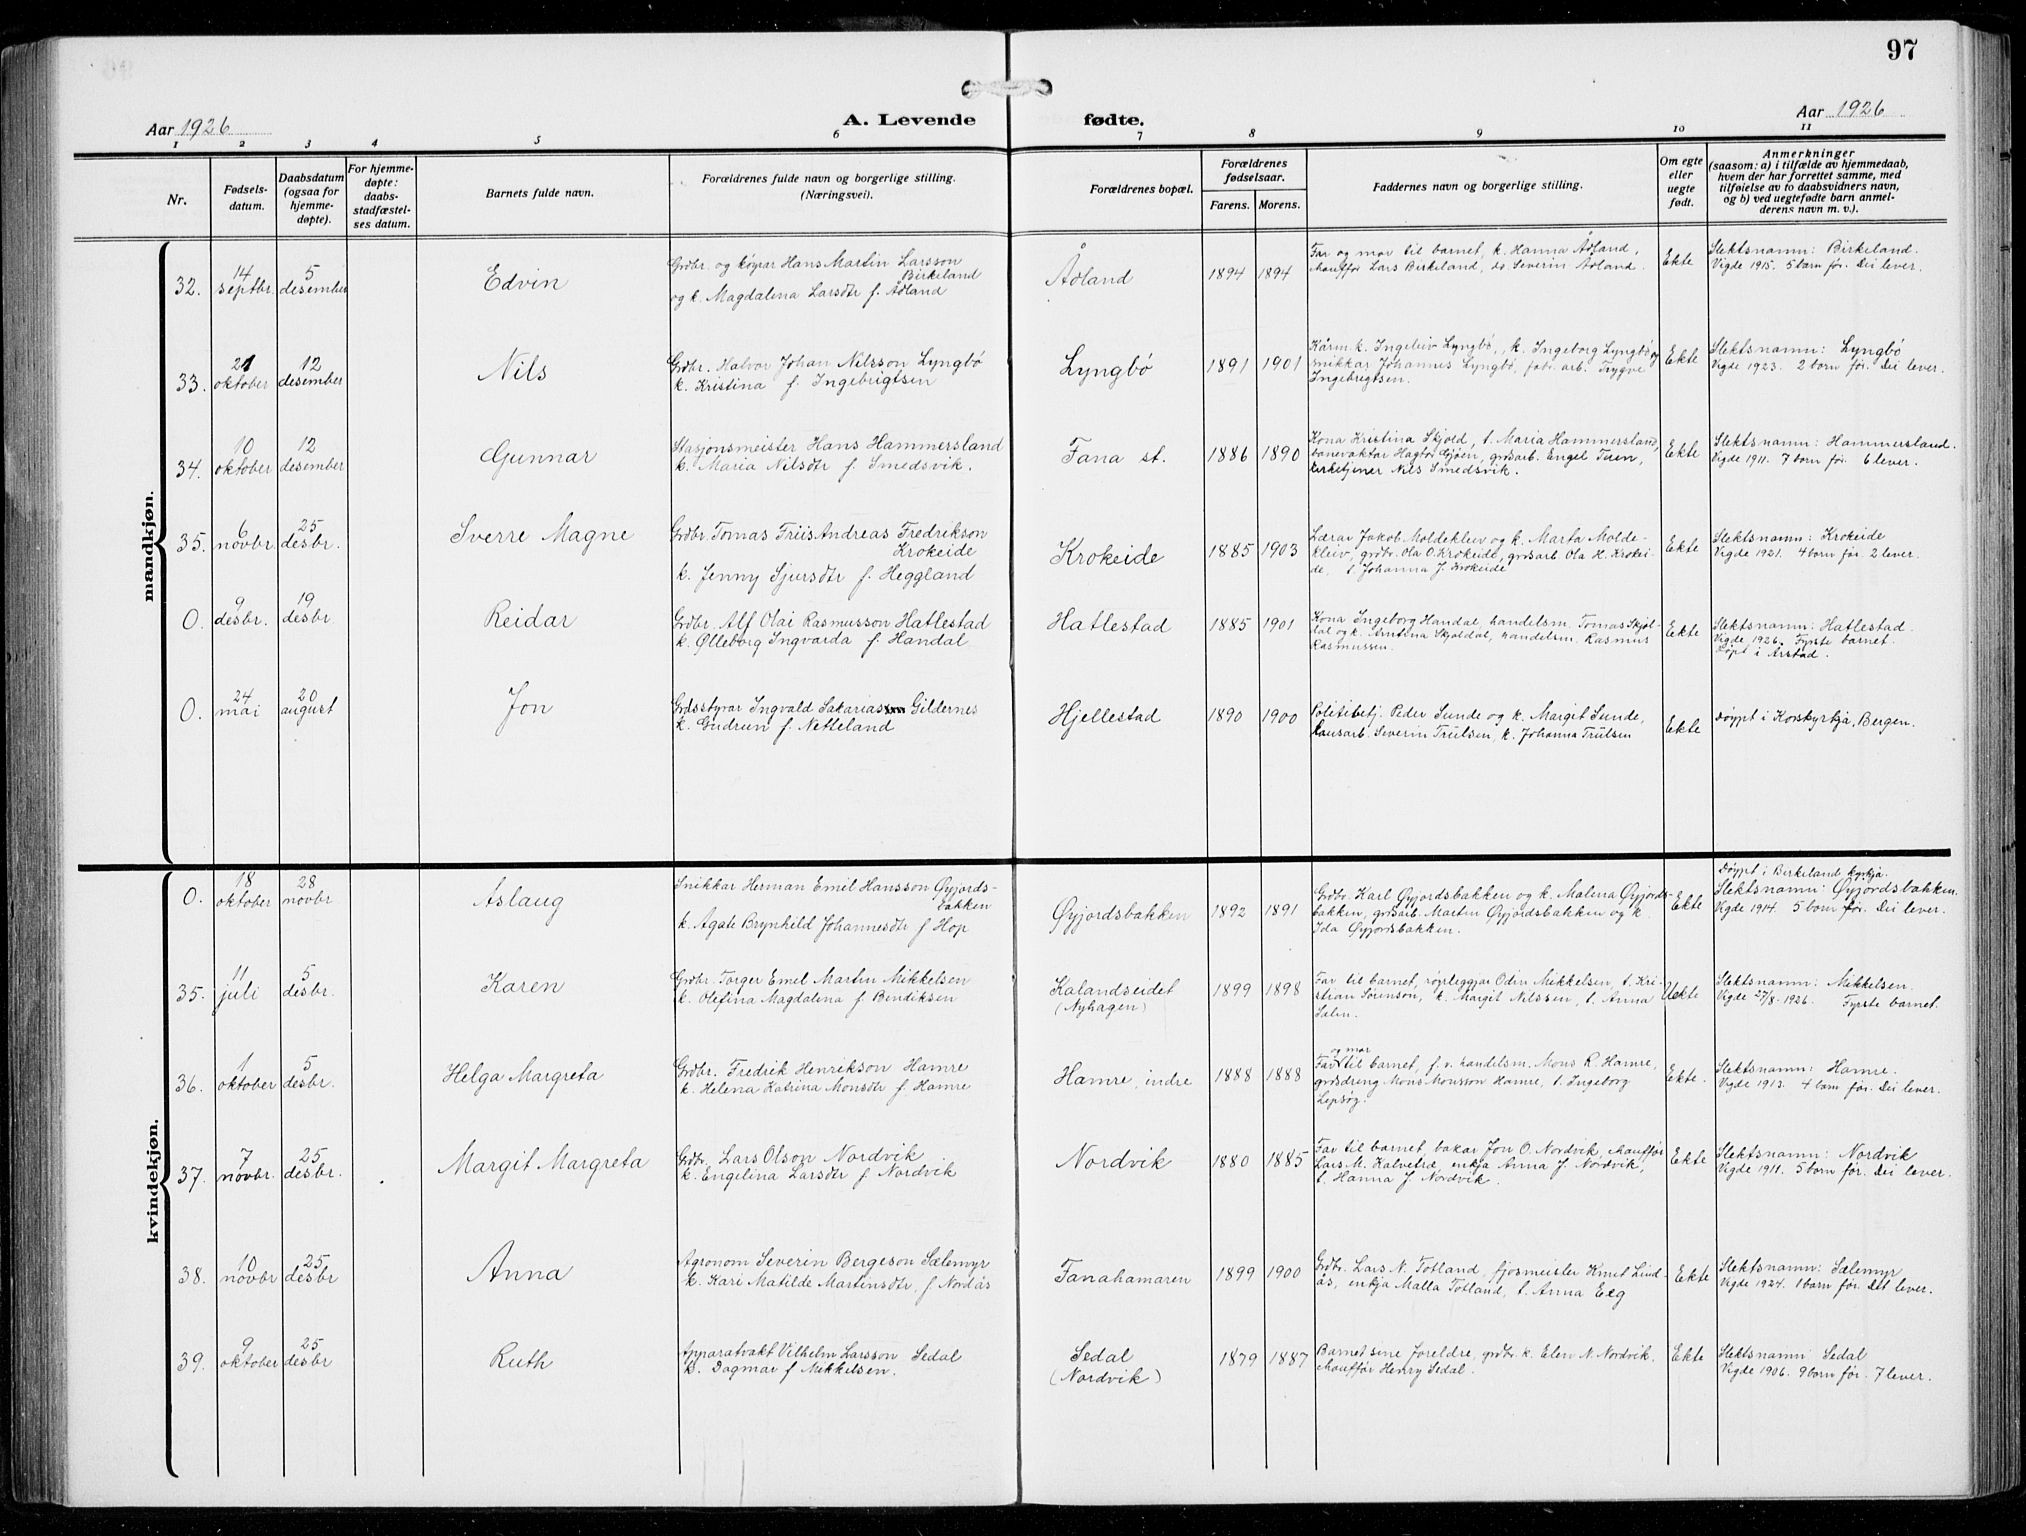 97
Aar 1926
A. Levende fødte.
Aar 1926
1 2 3 4 5 6 7 8 9 10 11
Nr.
Fødsels-
datum.
Daabsdatum
(ogsaa for
hjemme-
døpte).
For hjemme-
døpte:
daabs-
stadfæstel-
ses datum.
Barnets fulde navn.
Forældrenes fulde navn og borgerlige stilling.
(Næringsvei).
Forældrenes bopæl.
Forældrenes
fødselsaar.
Farens. Morens.
Faddernes navn og borgerlige stilling.
Om egte
eller
uegte
født.
Anmerkninger
(saasom: a) i tilfælde av hjemmedaab,
hvem der har forrettet samme, med
tilføielse av to daabsvidners navn,
og b) ved uegtefødte barn anmel-
derens navn m. v.).
mandkjøn.
32.
14
septbr.
5
desember
Edvin
Grdbr. og køyrar Hans Martin Larsson
Birkeland
og k. Magdalena Larsdtr f. Ådland
Ådland
1894 1894
Far og mor til barnet, k. Hanna Ådland,
chauffør Lars Birkeland, ds Severin Ådland.
Ekte
Slektsnamn: Birkeland.
Vigde 1915. 5 barn før. Dei lever.
33.
21
oktober
12
desember
Nils
Grdbr. Halvor Johan Nilsson Lyngbø
k. Kristina f. Ingebrigtsen
Lyngbø
1891 1901
Kårm. k. Ingeleiv Lyngbø, k. Ingeborg Lyngbø og
snikkar Johannes Lyngbø, fabr. arb. Trygve
Ingebrigtsen.
Ekte
Slektsnamn: Lyngbø
Vigde 1923. 2 born før. Dei lever.
34.
10
oktober
12
desember
Gunnar
Stasjonsmeister Hans Hammersland
k. Maria Nilsdtr f. Smedsvik.
Fana st.
1886 1890
Kona Kristina Skjold, t. Maria Hammersland,
banevaktar Hagbar Gjøen, grdsarb. Engel Tuen,
kirketjener Nils Smedsvik.
Ekte
Slektsnamn: Hammersland.
Vigde 1911. 7 born før. 6 lever.
35.
6
novbr.
25
desbr.
Sverre Magne
Grdbr. Tomas Friis Andreas Fredrikson
Krokeide
k. Jenny Sjursdtr f. Heggland
Krokeide
1885 1903
Lærar Jakob Moldekleiv og k. Marta Molde-
kleiv, grdbr. Ola O. Krokeide, grdsarb Ola H. Krokei-
de, t. Johanna J. Krokeide
Ekte
Slektsnamn: Krokeide
Vigde 1921. 4 born før. 2 lever.
0.
9
desbr.
19
desbr.
Reidar
Grdbr. Alf Olai Rasmusson Hatlestad
k. Ølleborg Ingvarda f. Handal
Hatlestad
1885 1901
Kona Ingeborg Handal, handelsm. Tomas Skjol-
dal og k. Arntina Skjoldal, handelsm. Rasmus
Rasmussen.
Ekte
Slektsnamn: Hatlestad.
Vigde 1926. Fyrste barnet.
Døpt i Årstad.
0.
24
mai
20
august
Jon
Grdsstyrar Ingvald Sakarias Gildernes
k. Gudrun f. Netteland
Hjellestad
1890 1900
Politibetj. Peder Sunde og k. Margit Sunde,
lausarb. Severin Trulsen, k. Johanna Trulsen
Ekte
Døypt i Korskyrkja, Bergen.
kvindekjøn.
0.
18
oktober
28
novbr.
Aslaug
Snikkar Herman Emil Hansson Øyjords-
bakken
k. Agate Brynhild Johannesdtr f Hop
Øyjordsbakken
1892 1891
Grdbr. Karl Øyjordsbakken og k. Malena Øyjords-
bakken, grdsarb. Martin Øyjordsbakken og k.
Ida Øyjordsbakken.
Ekte
Døypt i Birkeland kyrkja.
Slektsnamn: Øyjordsbakken.
Vigde 1914. 5 born før. Dei lever.
35.
11
juli
5
desbr.
Karen
Grdbr. Torger Emil Martin Mikkelsen
k. Olefina Magdalena f Bendiksen
Kalandseidet
(Nyhagen)
1899 1898
Far til barnet, røyrleggjar Odin Mikkelsen, t. Kri-
stian Sørenson, k. Margit Nilssen, t. Anna
Salen.
Uekte
Slektsnamn: Mikkelsen.
Vigde 27/8. 1926. Fyrste barnet.
36.
1
oktober
5
desbr.
Helga Margreta
Grdbr. Fredrik Henrikson Hamre
k. Helena Katrina Monsdtr f. Hamre
Hamre, indre
1888 1888
og mor
Far til barnet, f. v. handelsm. Mons R. Hamre,
grdsdreng Mons Monsson Hamre, t. Ingeborg
Lepsøy.
Ekte.
Slektsnamn: Hamre.
Vigde 1913. 4 born før. Dei lever.
37.
7
novbr.
25
desbr.
Margit Margreta
Grdbr. Lars Olson Nordvik
k. Engelina Larsdtr f. Nordvik
Nordvik
1880 1885
Far til barnet, bakar Jon O. Nordvik, chauffør
Lars M. Kalvetræ, enkja Anna J. Nordvik,
t. Hanna J. Nordvik.
Ekte
Slektsnamn: Nordvik
Vigde 1911. 5 born før. Dei lever.
38.
10
novbr
25
desbr
Anna
Agronom Severin Bergeson Sælemyr
k. Kari Matilde Martinsdtr, f. Nordås
Fanahamaren
1899 1900
Grdbr. Lars N. Totland, fjosmeister Knut Lind-
ås, enkja Malla Totland, t. Anna Elg
Ekte
Slektsnamn: Sælemyr
Vigde 1924. 1 barn før. Det lever.
39.
9
oktober
25
desbr
Ruth
Apparatvakt Vilhelm Larsson Sedal
k. Dagmar f Mikkelsen.
Sedal
(Nordvik)
1879 1887
Barnet sine foreldre, grdbr. k. Elen N. Nordvik.
chauffør Henry Sedal.
Ekte
Slektsnamn Sedal
Vigde 1906. 9 born før. 7 lever.